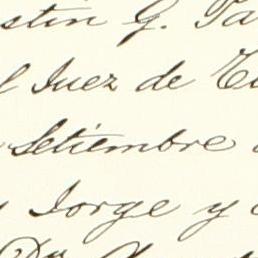 stin G. Ta
l Juez de
Setiembre
Jorge y